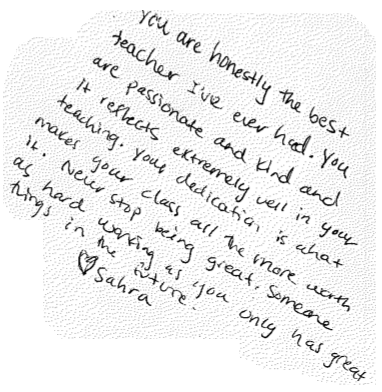 You are honestly the best
teacher I've ever had. You
are passionate and kind and
it reflects extremely well in your
teaching. Your dedication is what
makes your class all the more worth
it. Never stop being great. Someone
as hard working as you only has great
things in the future!
♡ Sahra